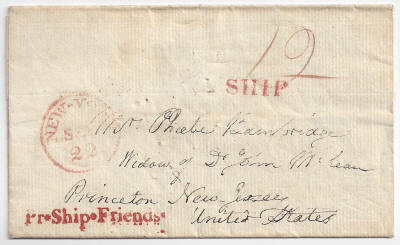 12
SHIP
NEW-YO
S
22
Mrs. Phoebe Bainbridge
Widow of Dr. John McLean
Princeton New Jersey
Pr·Ship·Friends
United States